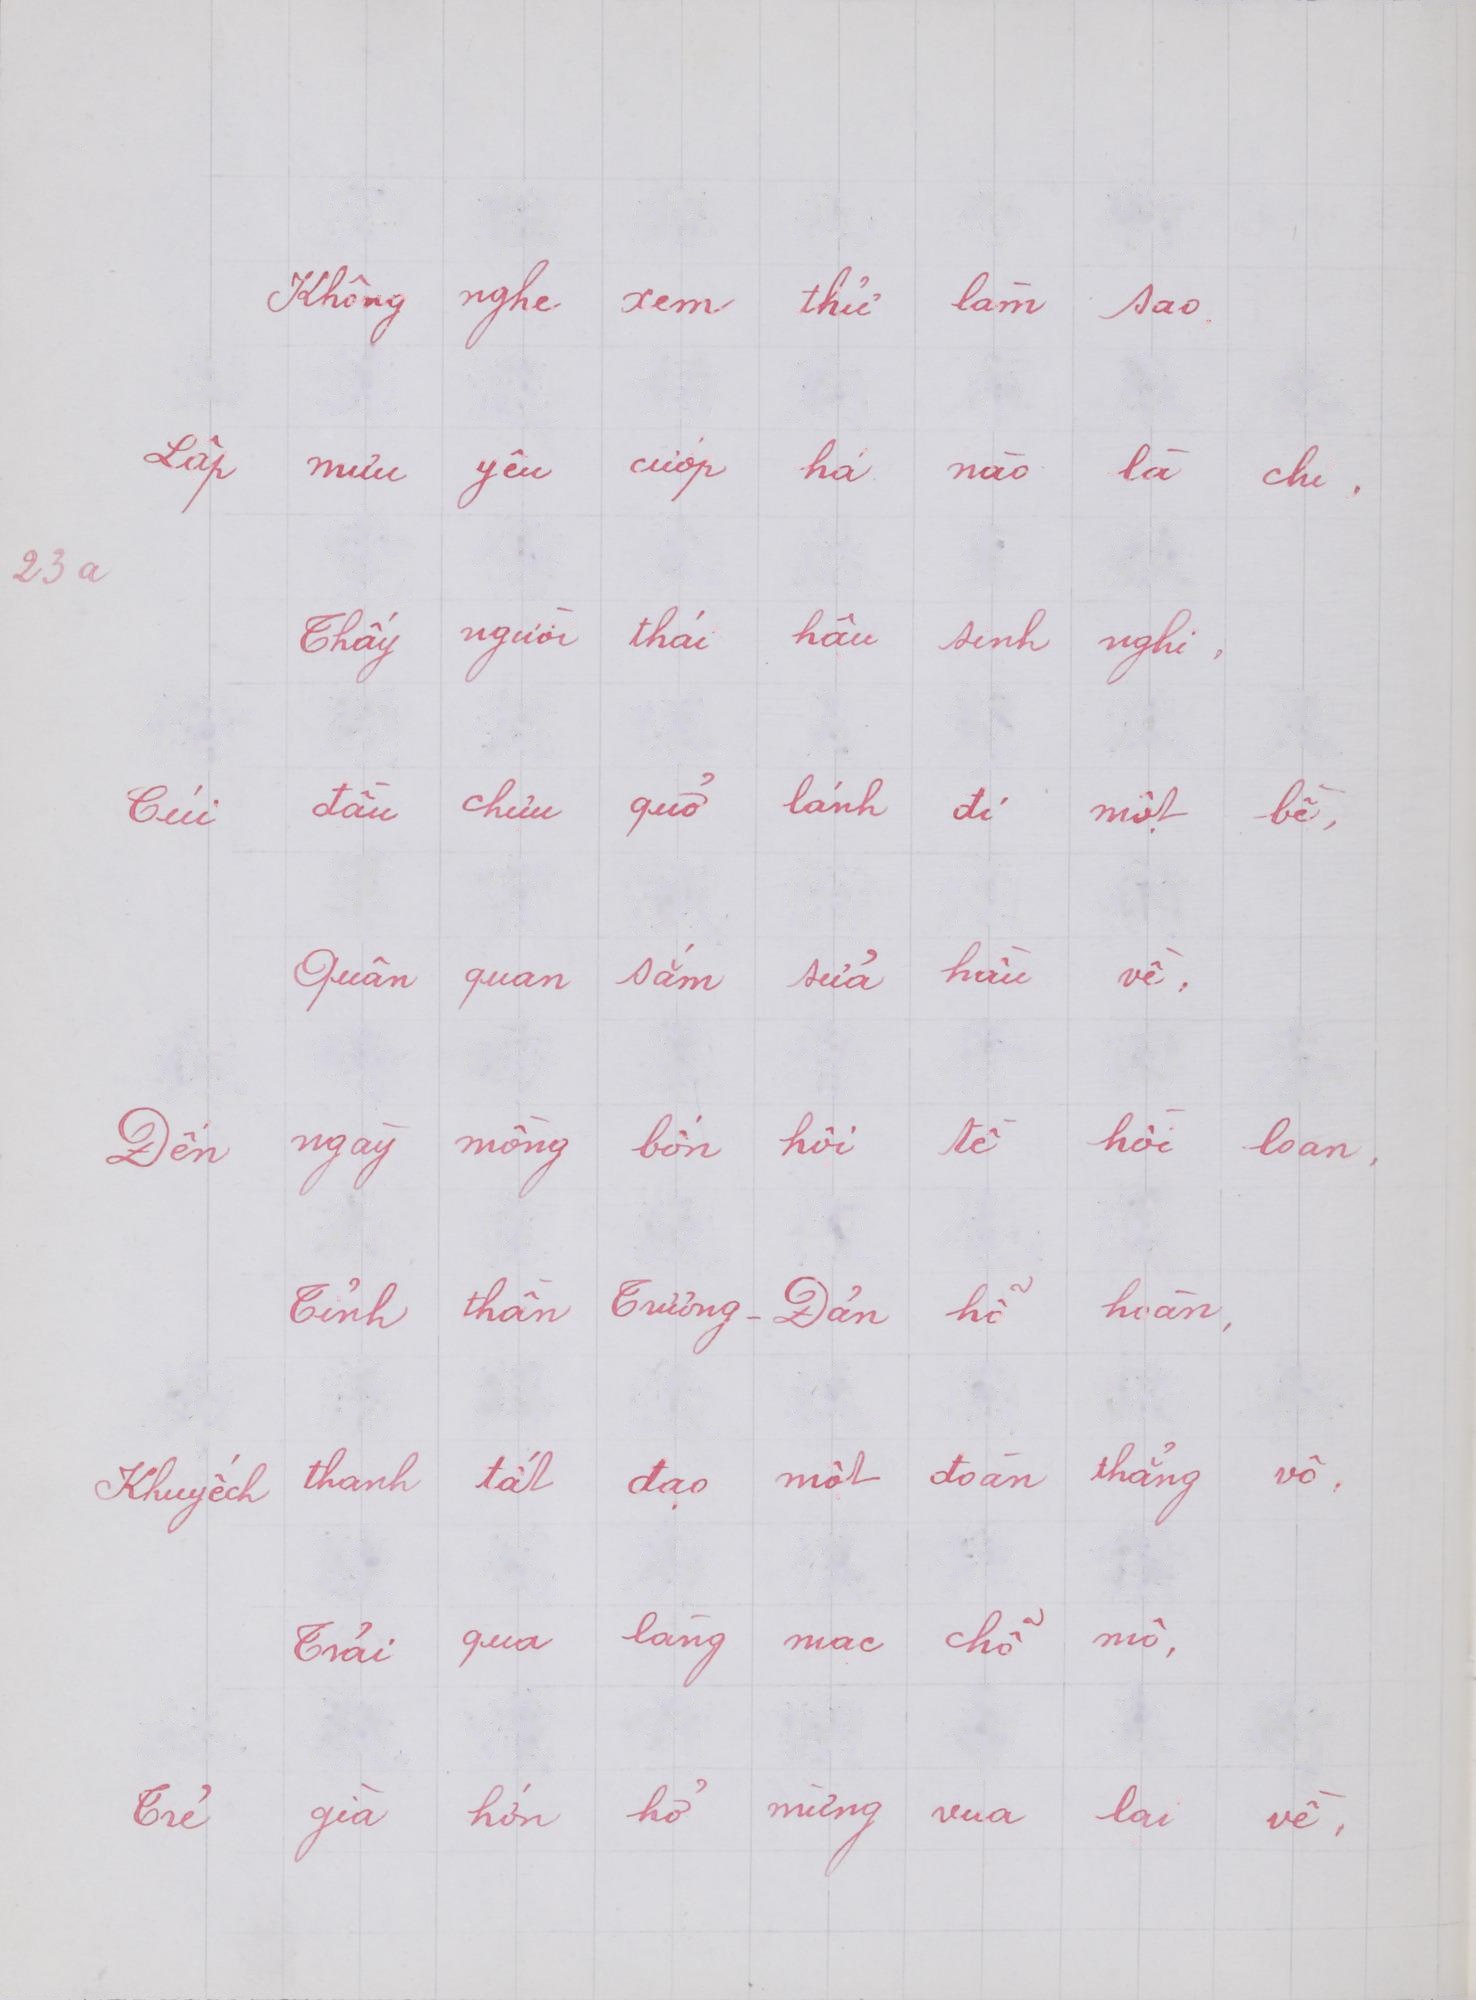 Không nghe xem thử làm sao.
Lập mưu yêu cướp há nào là chi,
23a
Thấy người thái hậu sinh nghi,
Cúi đầu chịu quở lánh đi một bề,
Quân quan sắm sửa hầu về,
Đến ngày mồng bốn hôi tề hồi loan,
Tỉnh thần Trương-Đản hỗ hoàn,
Khuyếch thanh tất đạo một đoàn thẳng vô,
Trải qua làng mạc chỗ mô,
Trẻ già hớn hở mừng vua lại về,